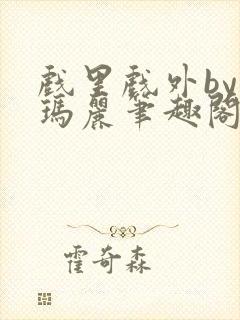 戲里戲外by
瑪麗筆趣閣
霍奇森